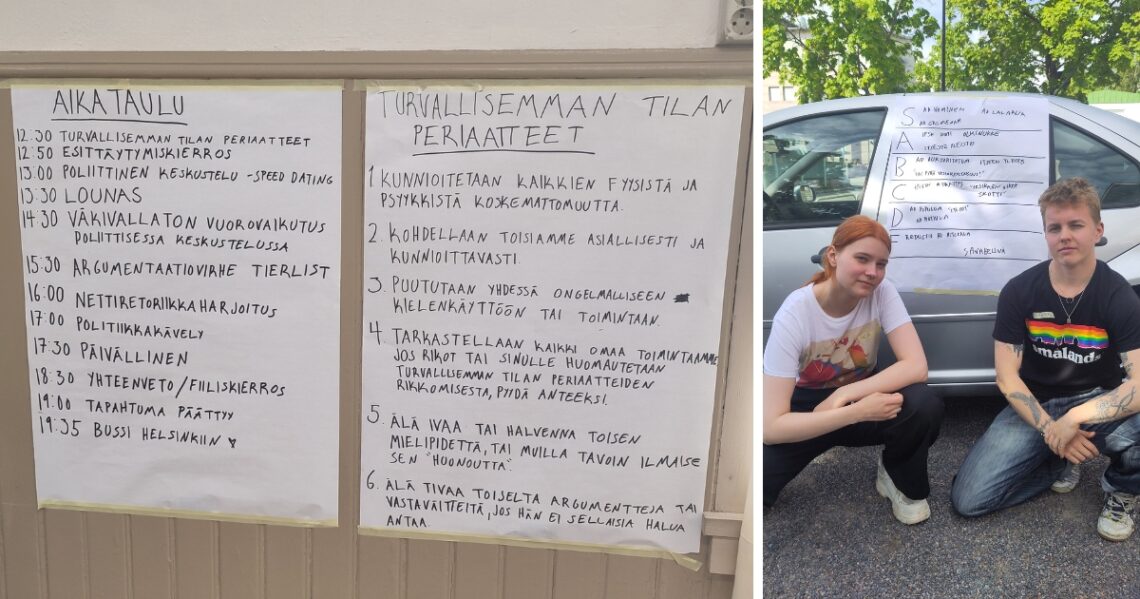 AIKATAULU
12:30 TURVALLISEMMAN TILAN PERIAATTEET
12:50 ESITTÄYTYMISKIERROS
13:00 POLIITTINEN KESKUSTELU - SPEED DATING
13:30 LOUNAS
14:30 VÄKIVALLATON VUOROVAIKUTUS
POLIITTISESSA KESKUSTELUSSA
15:30 ARGUMENTAATIOVIRHE TIERLIST
16:00 NETTIRETORIIKKAHARJOITUS
17:00 POLITIIKKAKÄVELY
17:30 PÄIVÄLLINEN
18:30 YHTEENVETO/FIILISKIERROS
19:00 TAPAHTUMA PÄÄTTYY
19:35 BUSSI HELSINKIIN
TURVALLISEMMAN TILAN
PERIAATTEET
1 KUNNIOITETAAN KAIKKIEN FYYSISTÄ JA
PSYYKKISTÄ KOSKEMATTOMUUTTA.
2. KOHDELLAAN TOISIAMME ASIALLISESTI JA
KUNNIOITTAVASTI.
3. PUUTUTAAN YHDESSÄ ONGELMALLISEEN
KIELENKÄYTTÖÖN TAI TOIMINTAAN.
4. TARKASTELLAAN KAIKKI OMAA TOIMINTAAMME
JOS RIKOT TAI SINULLE HUOMAUTETAAN
TURVALLISEMMAN TILAN PERIAATTEIDEN
RIKKOMISESTA, PYYDÄ ANTEEKSI.
5. ÄLÄ IVAA TAI HALVENNA TOISEN
MIELIPIDETTÄ, TAI MUILLA TAVOIN ILMAISE
SEN "HUONOUTTA".
6. ÄLÄ TIVAA TOISELTA ARGUMENTTEJA TAI
VASTAVÄITTEITÄ, JOS HÄN EI SELLAISIA HALUA
ANTAA.
S
A
B
C
D